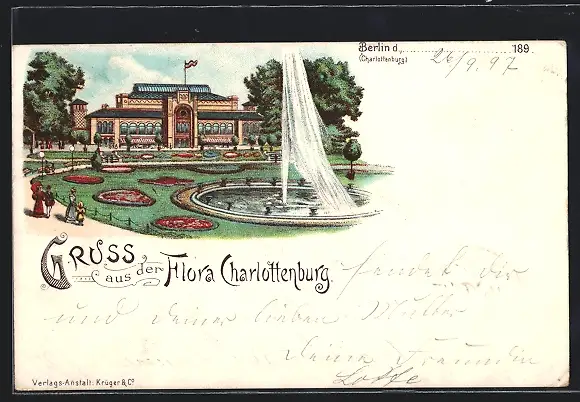 Berlin d, 26/9. 97 189
(Charlottenburg)
Gruss aus der Flora Charlottenburg. sendet Dir
und Deiner lieben Mutter
Deine Freundin
Lotte
Verlags-Anstalt: Krüger & Co